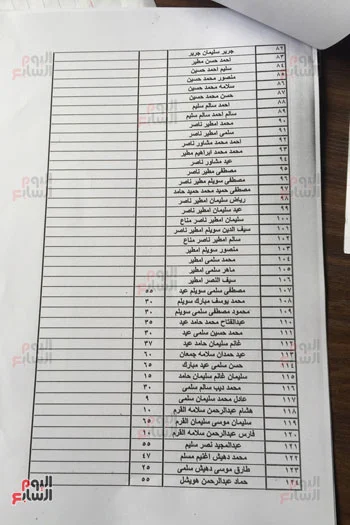 ٨٢ جرير سليمان جرير
٨٣ احمد حسن مطير
٨٤ سليم احمد حسين
٨٥ منصور محمد حسين
٨٦ سلامه محمد حسين
٨٧ حسن محمد حسين
٨٨ احمد سالم سليم
٨٩ سالم احمد سالم سليم
٩٠ محمد امطير ناصر
٩١ سلمى امطير ناصر
٩٢ احمد محمد مشاور ناصر
٩٣ محمد محمد ابراهيم مطير
٩٤ عيد مشاور ناصر
٩٥ مصطفى مطير ناصر
٩٦ مصطفى سويلم مطير ناصر
٩٧ مصطفى حميد محمد حميد حامد
٩٨ رياض سليمان امطير ناصر
٩٩ عيد سليمان امطير ناصر
١٠٠ سليمان امطير ناصر مناع
١٠١ سيف الدين سويلم امطير ناصر
١٠٢ سالم امطير ناصر مناع
١٠٣ منصور سويلم امطير
١٠٤ محمد سلمى امطير
١٠٥ ماهر سلمى امطير
١٠٦ سيف النصر امطير
١٠٧ مصطفى سلمى سويلم عيد ٥٥
١٠٨ محمد يوسف مبارك سويلم ٣٠
١٠٩ محمود مصطفى سلمى سويلم ٣٠
١١٠ عبدالفتاح محمد حامد عيد ٣٥
١١١ محمد حسين سلمى عيد ٣٠
١١٢ غانم سليمان حامد عيد ٣٧
١١٣ عيد حمدان سلامه جمعان ٦٠
١١٤ حسن سلمى عيد مبارك ٦٥
١١٥ سليمان غانم سليمان حامد ١٥
١١٦ محمد ديب سالم سلمى ٣٠
١١٧ عادل محمد سليمان سلمى ٩
١١٨ هشام عبدالرحمن سلامه القرم ١٠
١١٩ سليمان موسى سليمان القرم ١٥
١٢٠ فارس عبدالرحمن سلامه القرم ١٠
١٢١ عبدالمجيد نصر سليم ٥٥
١٢٢ محمد دهيش اغنيم مسلم ٤٧
١٢٣ طارق موسى دهيش سلمى ٢٥
١٢٤ حماد عبدالرحمن هويشل ٥٥
اليوم السابع